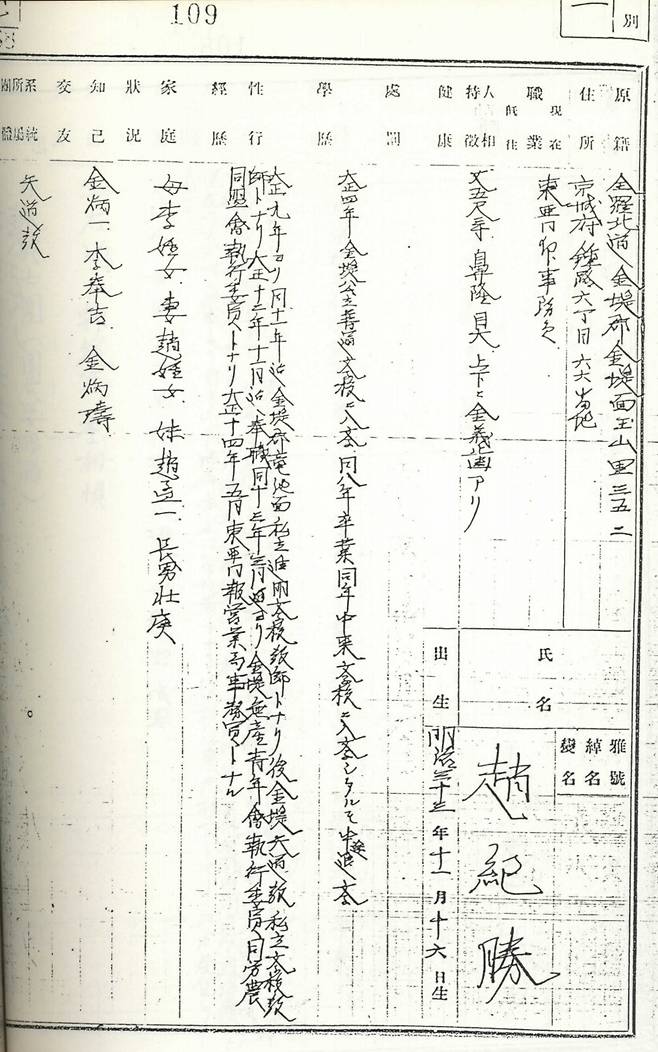 109
一
別
原籍
全羅北道金堤郡金堤面玉山里三五二
住所
京城府鍾路六丁目六六番地
職業
現在
既往
東亜日報事務員
人相特徴
丈五尺寸 鼻隆 目大 上下ニ金義歯アリ
健康
處罰
學歷
大正四年金堤公立普通学校ニ入学同八年卒業同年中東学校ニ入学シタルモ中途退学
性行
經歷
大正九年ヨリ同十一年迄金堤郡竜池面私立進明学校教師トナリ後金堤天道教私立学校教
師トナリ大正十二年十一月迄奉職同十三年三月ヨリ金堤無産青年會執行委員同労農
同盟會執行委員トナリ大正十四年五月東亜日報営業局事務員トナル
家庭
狀況
母李姓女 妻趙姓女 妹趙 一 長男壮庚
知己
交友
金炳一 李奉吉 金炳璹
系統所屬團體
天道教
氏名
雅號
綽名
變名
趙紀勝
出生
明治三十三年十一月十六日生